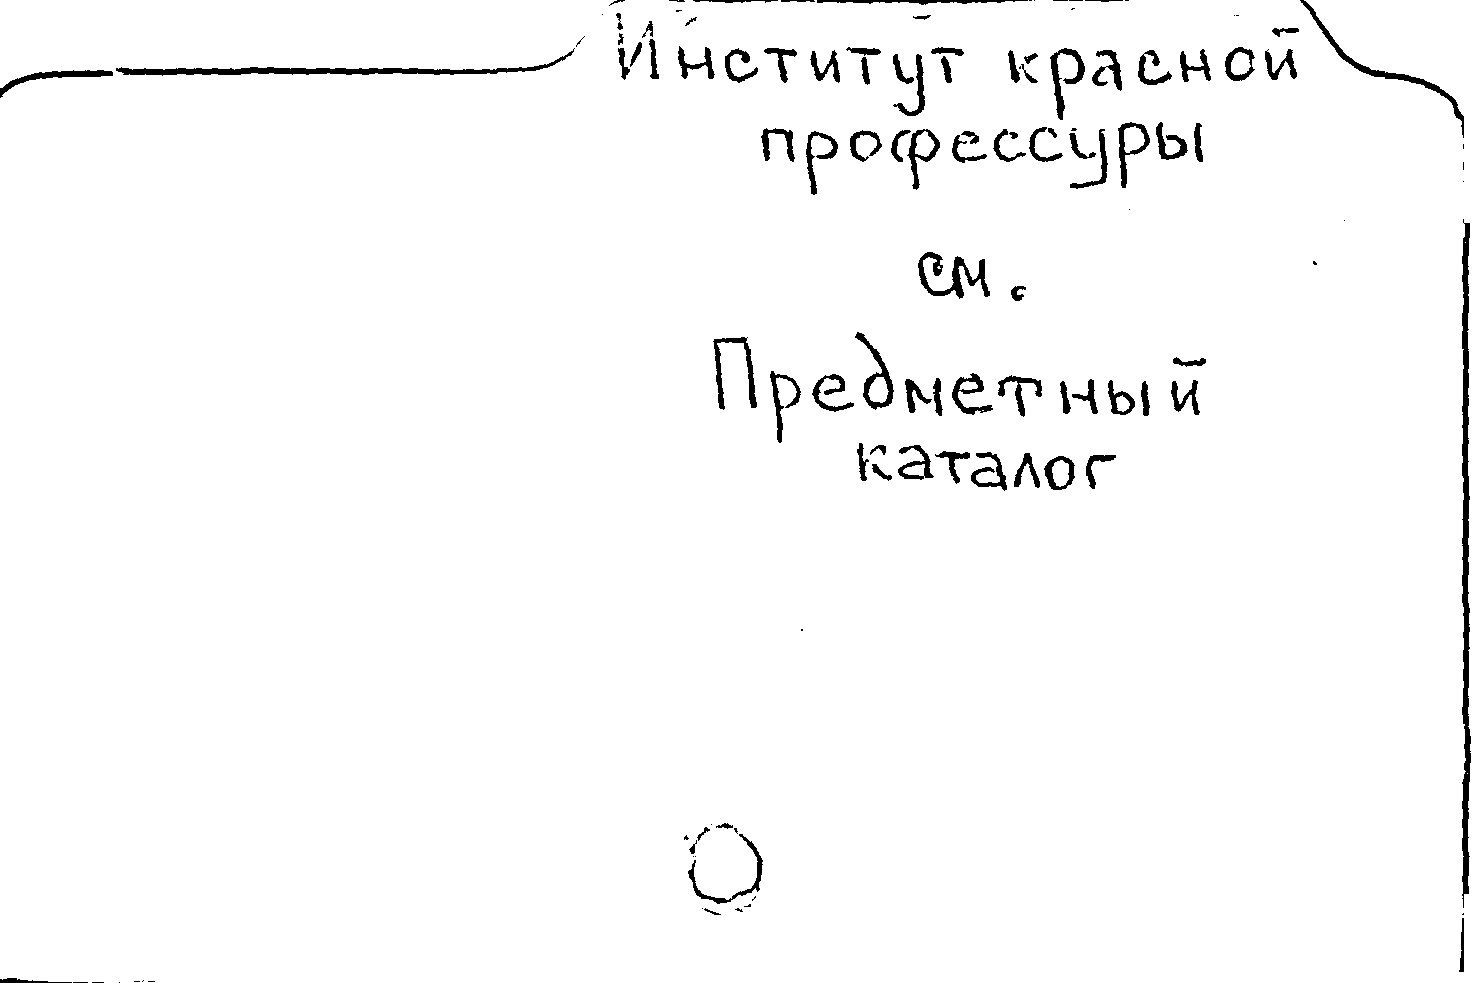 Институт красной
профессуры
см.
Предметный
каталог